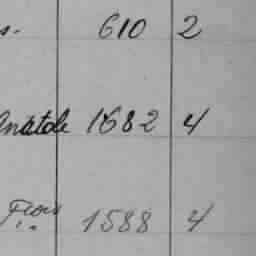 s. 610 2
Anatole 1682 4
1588 4